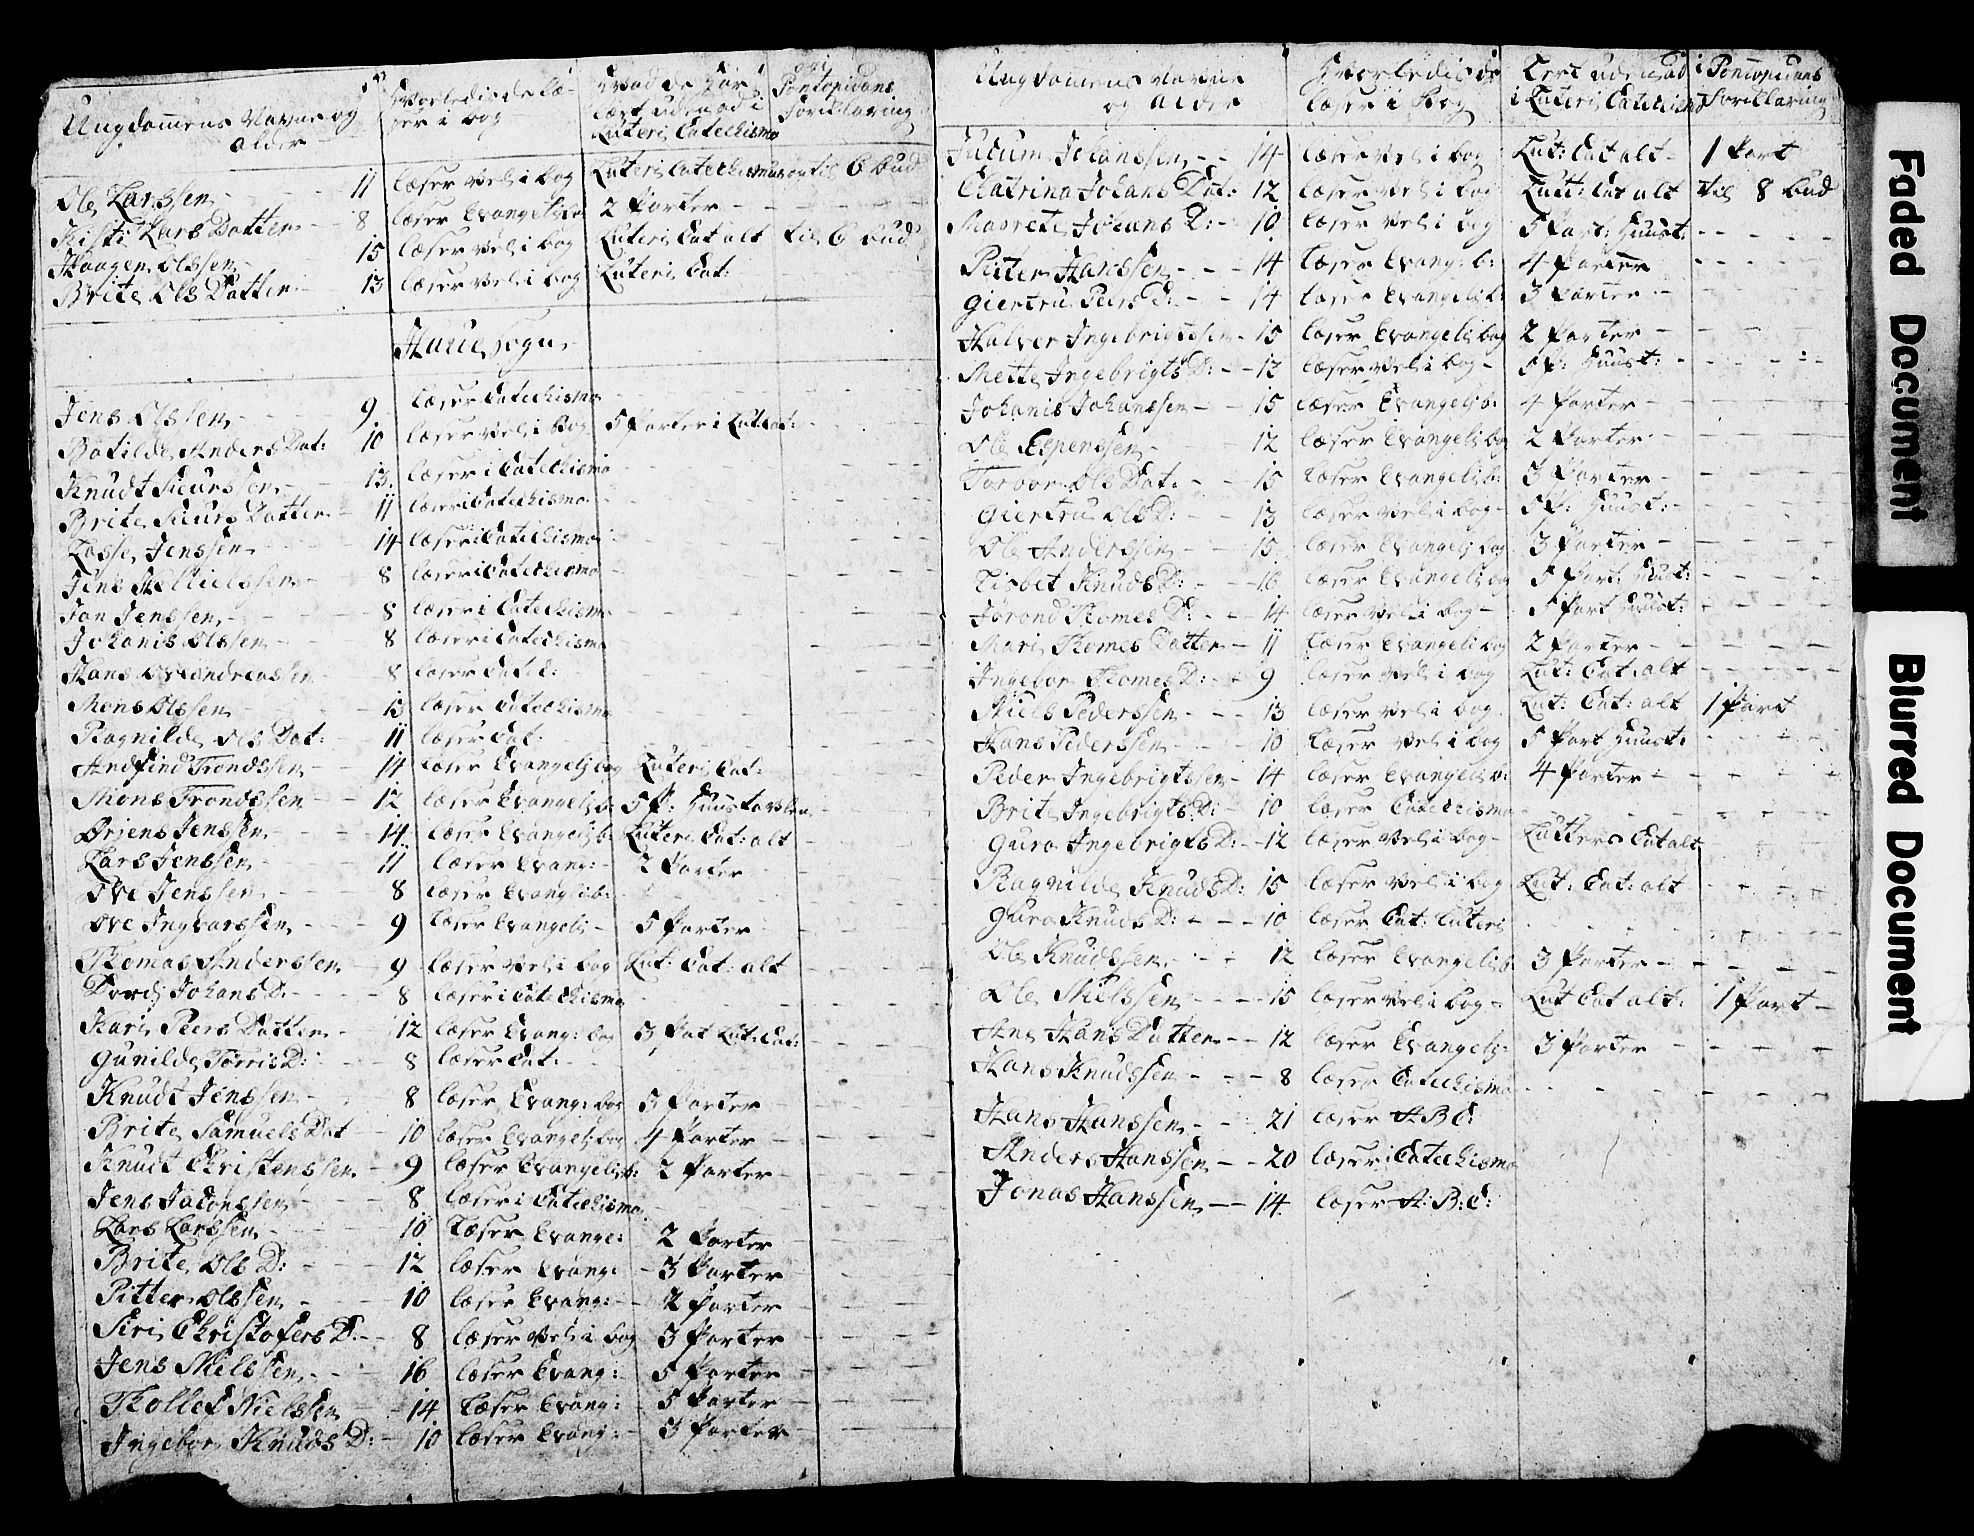 Ungdommens Navne og alder Hvorledis de læser i bog Hvad de har lært uden ad i Luteri Catechismo og i Pontopidans Forklaring
Ole Larssen 11 læser Vel i bog Luteri Catechismus og til 6 bud
Kisti Lars Datter 8 læser Evangeli bo 2 Parter
Haagen Olssen 15 læser Vel i bog Luteri Cat alt til 6 bud
Brite Ols Datter 13 læser Vel i bog Luteri Cat:
Houe Sogn
Jens Olssen 9 læser Catechismo
Botilde Anders Dat: 10 læser Vel i Bog 5 Parter i Lut Cat:
Knudt Siurssen 13 læser i Catechismo
Brite Siurs Datter 11 læser i Catechismo
Lasse Jenssen 14 læser i Catechismo
Jens 8 læser i Catechismo
Jon Jenssen 8 læser i Catechismo
Johanis Olssen 8 læser i Catechismo
Hans Andreassen 8 læser Cat
Mons Olssen 13 læser Catechismo
Ragnilde Ols Dat: 11 læser Cat:
Andfind Trondssen 14 læser Evangeli bog Luteri Cat:
Mons Trondssen 12 læser Evangeli b: 5 P: Huustavlen
Ørjens Jenssen 14 læser Evangeli b: Luteri Cat: alt
Lars Jenssen 11 læser Evang: 2 Parter
Ove Jenssen 8 læser Evangli b:
Ove Ingvarssen 9 læser Evangeli 5 Parter
Thomas Anderssen 9 læser Vel i bog Lut: Cat: alt
Dordi Johans D: 8 læser i Catechismo
Kari Peers Datter 12 læser Evang: bog 3 Pat Lut: Cat:
Gunilde Torris D: 8 læser Cat:
Knudt Jenssen 8 læser Evang: bog 5 Parter
Brite Samuels Dat 10 læser Evangeli bog 4 Parter
Knudt Christenssen 9 læser Evangeli b: 2 Parter
Jens Jacobssen 8 læser i Catechismo
Lars Larssen 10 læser Evange: 2 Parter
Brite Ols D: 12 læser Evang: 3 Parter
Pitter Olssen 10 læser Evang: 2 Parter
Siri Christofers D: 8 læser Vel i bog 3 Parter
Jens Nielssen 16 læser Evang: 5 Parter
Tollef Nielssen 14 læser Evang: 5 Parter
Ingebor Knuds D: 10 læser Evang: 3 Parter
Ungdommens Navne og Alder Hvorledis de læser i Bog Lert uden ad i Luteri Catechismo i Pontopidans Forklaring
Johanssen 14 læser Vel i bog Lut: Cat alt 1 Part
Catrina Johans Dat: 12 læser Vel i bog Lut: Cat alt til 8 bud
Marrete Johans D: 10 læser Vel i bog 5 Part: Huust:
Pitter Hanssen 14 læser Evang: b: 4 Parter
Giertru Peers D: 14 læser Evangeli b: 3 Parter
Halver Ingebrigtssen 15 læser Evangeli bog 2 Parter
Mette Ingebrigts D: 13 læser Vel i bog 5 P: Huust:
Johanis Johanssen 15 læser Evangeli b: 4 Parter
Ole Espenssen 12 læser Evangeli bog 2 Parter
Torbor Ols Dat: 15 læser Evangeli b: 3 Parter
Giertru Ols D: 13 læser Vel i bog 5 P: Huust:
Ole Anderssen 15 læser Evangeli bog 3 Parter
Lisbet Knuds D: 16 læser Evangeli bog 5 Part: Huust:
Jorond Thomes D: 14 læser Vel i bog 5 Part Huust:
Mari Thomes Datter 11 læser Evangeli bog 2 Parter
Ingebor Thomes D: 9 læser Vel i bog Lut: Cat: alt
Niels Pederssen 13 læser Vel i bog Lut: Cat: alt 1 Part
Hans Pederssen 10 læser Vel i bog 5 Part Huust:
Peder Ingebrigtssen 14 læser Evangeli b: 4 Parter
Brite Ingebrigts D: 10 læser Catechismo
Guro Ingebrigts D: 12 læser Vel i bog Lutteri Cat alt
Ragnilde Knuds D: 15 læser Vel i bog Lut: Cat: alt
Guro Knuds D: 10 læser Cat: Luteri
Ole Knudssen 12 læser Evangeli b 3 Parter
Ole Nielssen 15 læser Vel i bog Lut Cat alt: 1 Part
Ane Hans Datter 12 læser Evangeli: 3 Parter
Hans Knudssen 8 læser Catechismo
Hans Hanssen 21 læser A B C:
Anders Hanssen 20 læser i Catechismo
Jonas Hanssen 14 læser A: B: C:
Faded Document
Blurred Document